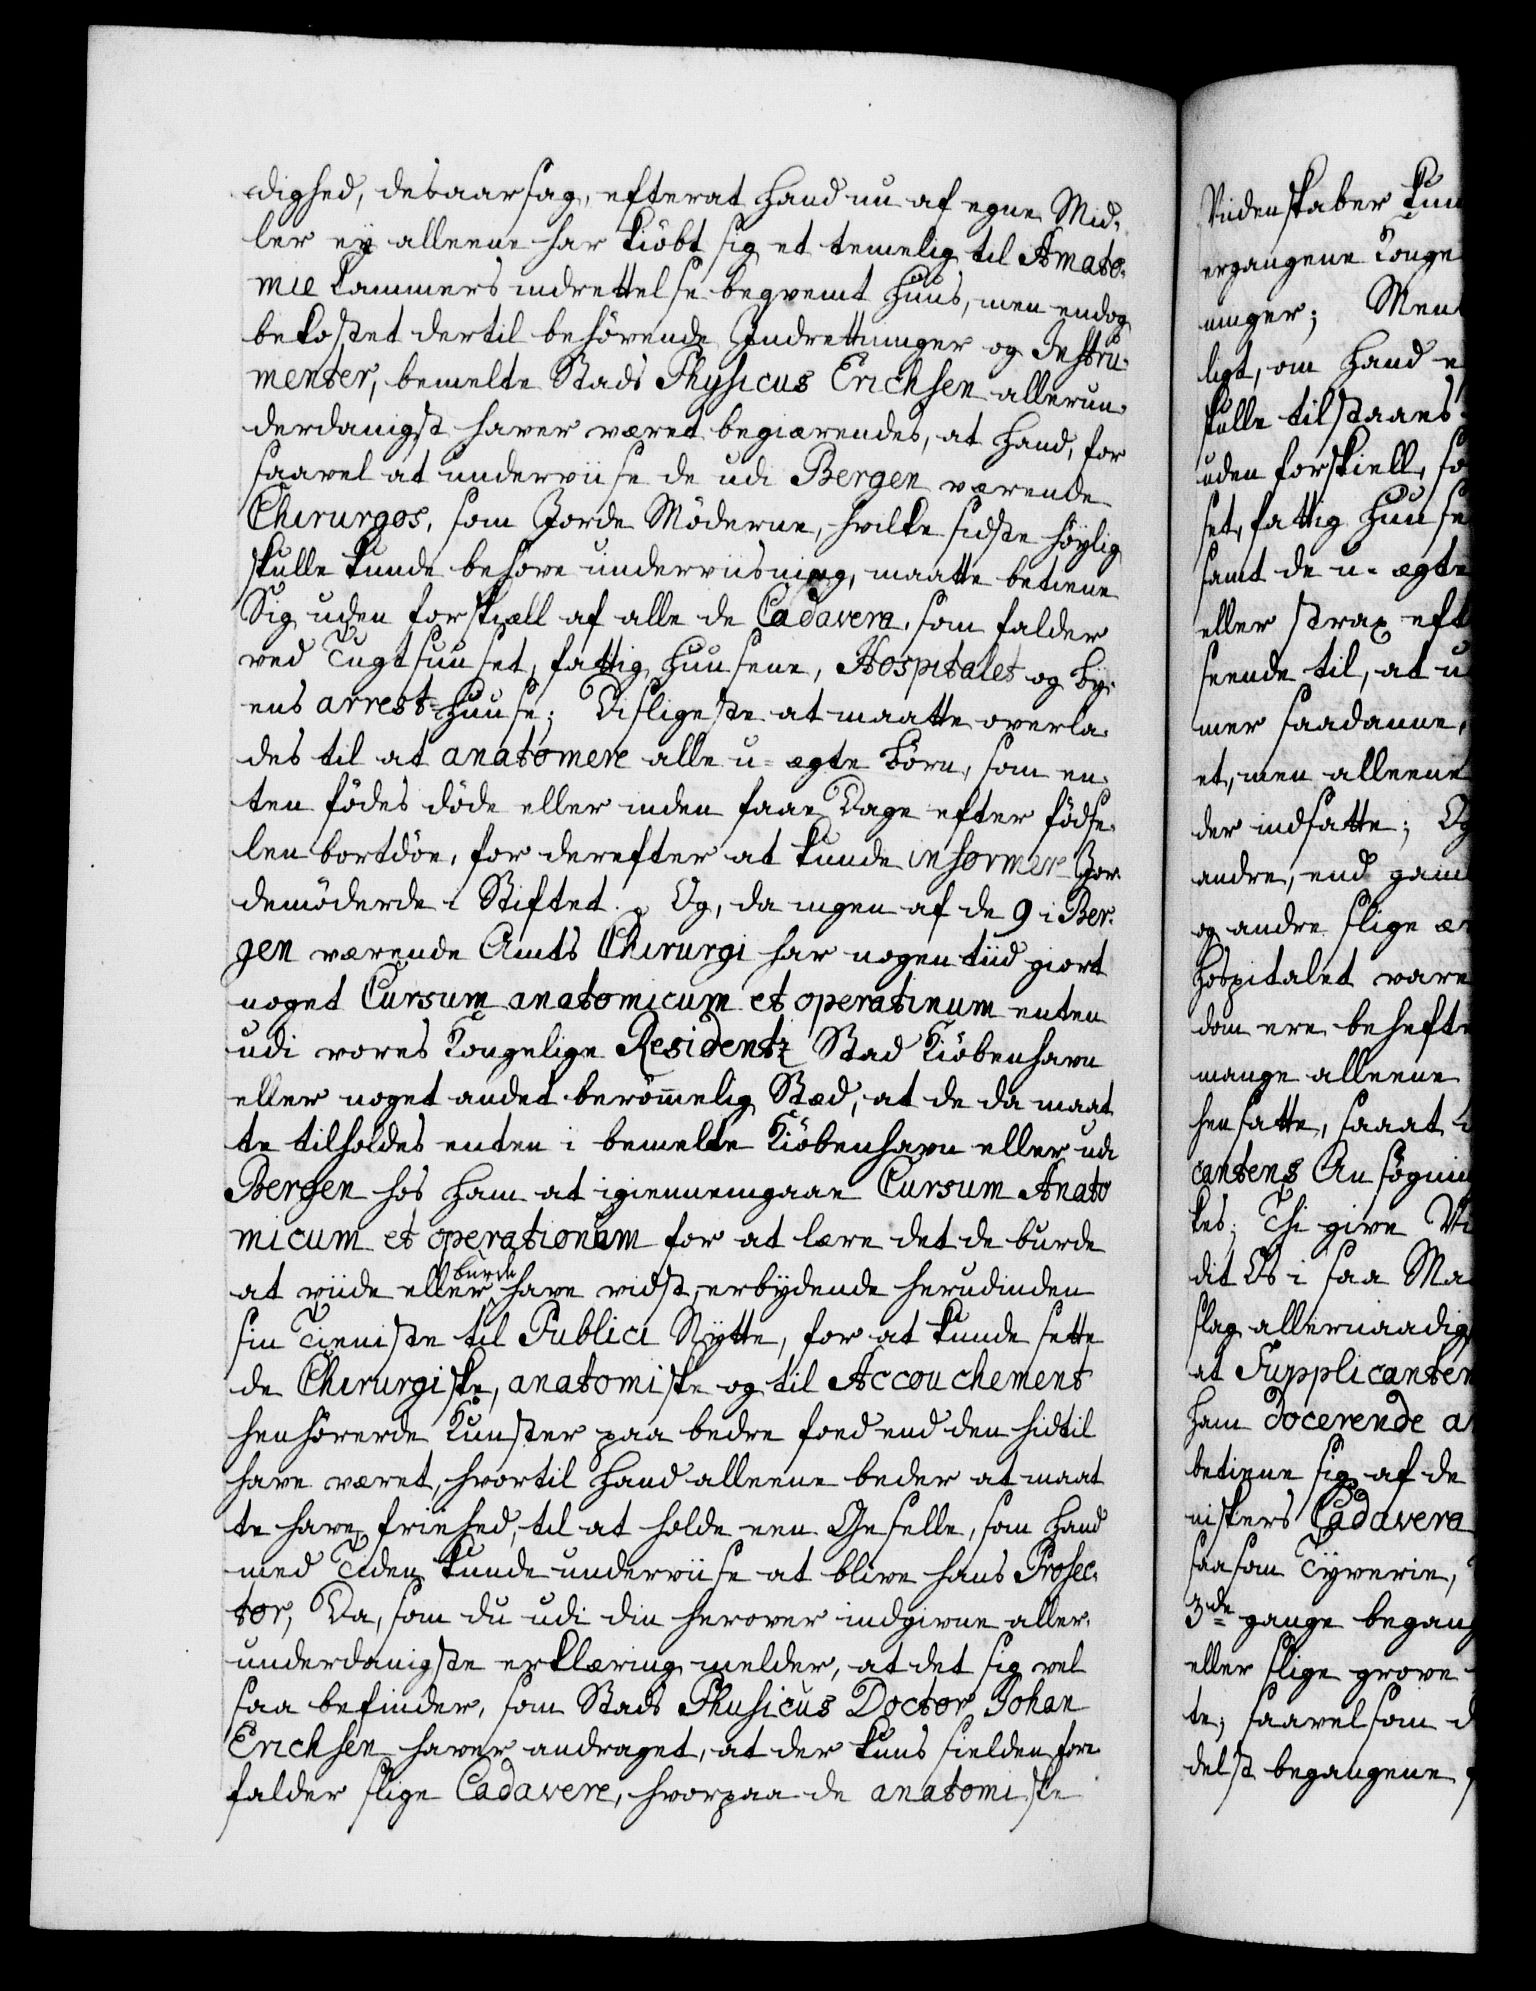 dighed, desaarsag, efterat Hand nu af egne Mid-
ler ey alleene har kiöbt sig et temelig til Amato-
mie Kammers indrettelse beqvemt Huus, men endog
bekostet dertil behörende Indretninger og Instru-
menter, bemelte Stads Physicus Erichsen allerun-
derdanigst haver været begiærendes, at Hand, for
saavel at underviise de udi Bergen værende
Chirurgos, som Jorde Möderne, hvilke sidste höylig
skulle kunde behöve underviisning, maatte betiene
Sig uden forskiæll af alle de Cadavera, som falder
ved Tugthuuset, fattig Huusene, Hospitalet og By-
ens arrest-Huuse; Disligeste at maatte overla-
des til at anatomere alle u-ægte börn, som en-
ten födes döde eller inden faae Dage efter födse-
len bortdöe, for derefter at kunde informere Jor-
demöderde i Stiftet. Og, da ingen af de 9 i Ber-
gen værende Amts Chirurgi har nogen tiid giort
noget Cursum anatomicum et operatinum enten
udi vores Kongelige Residentz Stad Kiöbenhavn
eller noget andet berömmelig Stæd, at de da maat
te tilholdes enten i bemelte Kiöbenhavn eller udi
Bergen hos ham at igiennemgaae Cursum Anato
micum et operationum for at lære det de burde
at viide eller burde have vidst, erbydende herudinden
sin Tieniste til Publici Nytte, for at kunde sette
de Chirurgiske, anatomiske og til Accouchement
henhörerde Kunster paa bedre foed end den hidtil
have været, hvortil Hand alleene beder at maat
te have friehed, til at holde een Geselle, som Hand
med Tiden kunde underviise at blive hans Prosec-
tor, Da, som du udi din herover indgivne aller-
underdanigste erklæring melder, at det sig vel
saa befinder, som Stads Phusicus Doctor Johan
Erichsen haver andraget, at der kuns sielden fore-
falder slige Cadavere, hvorpaa de anatomiske
Viidenskaber kun
ergangene Konge
ninger; Men
ligt, om Hand e
skulle tilstaaes
uden forskiell, so
set, fattig Huuse
samt de u-ægte
eller strax eft
seende til, at u
mer saadanne,
et, men alleene
der indsatte; Og
andre, end gam
og andre slige æ
Hospitalet vare
dom ere behefte
mange alleene
hensatte, saaat
cantens Ansögnin
kes; Thi give Vi
dit Os i saa Ma
slag allernaadig
at Supplicanten
ham docerende a
betiene sig af de
niskers Cadavera
saasom Tyverie,
3de gange begang
eller slige grove
te; saavelsom d
delst begangene